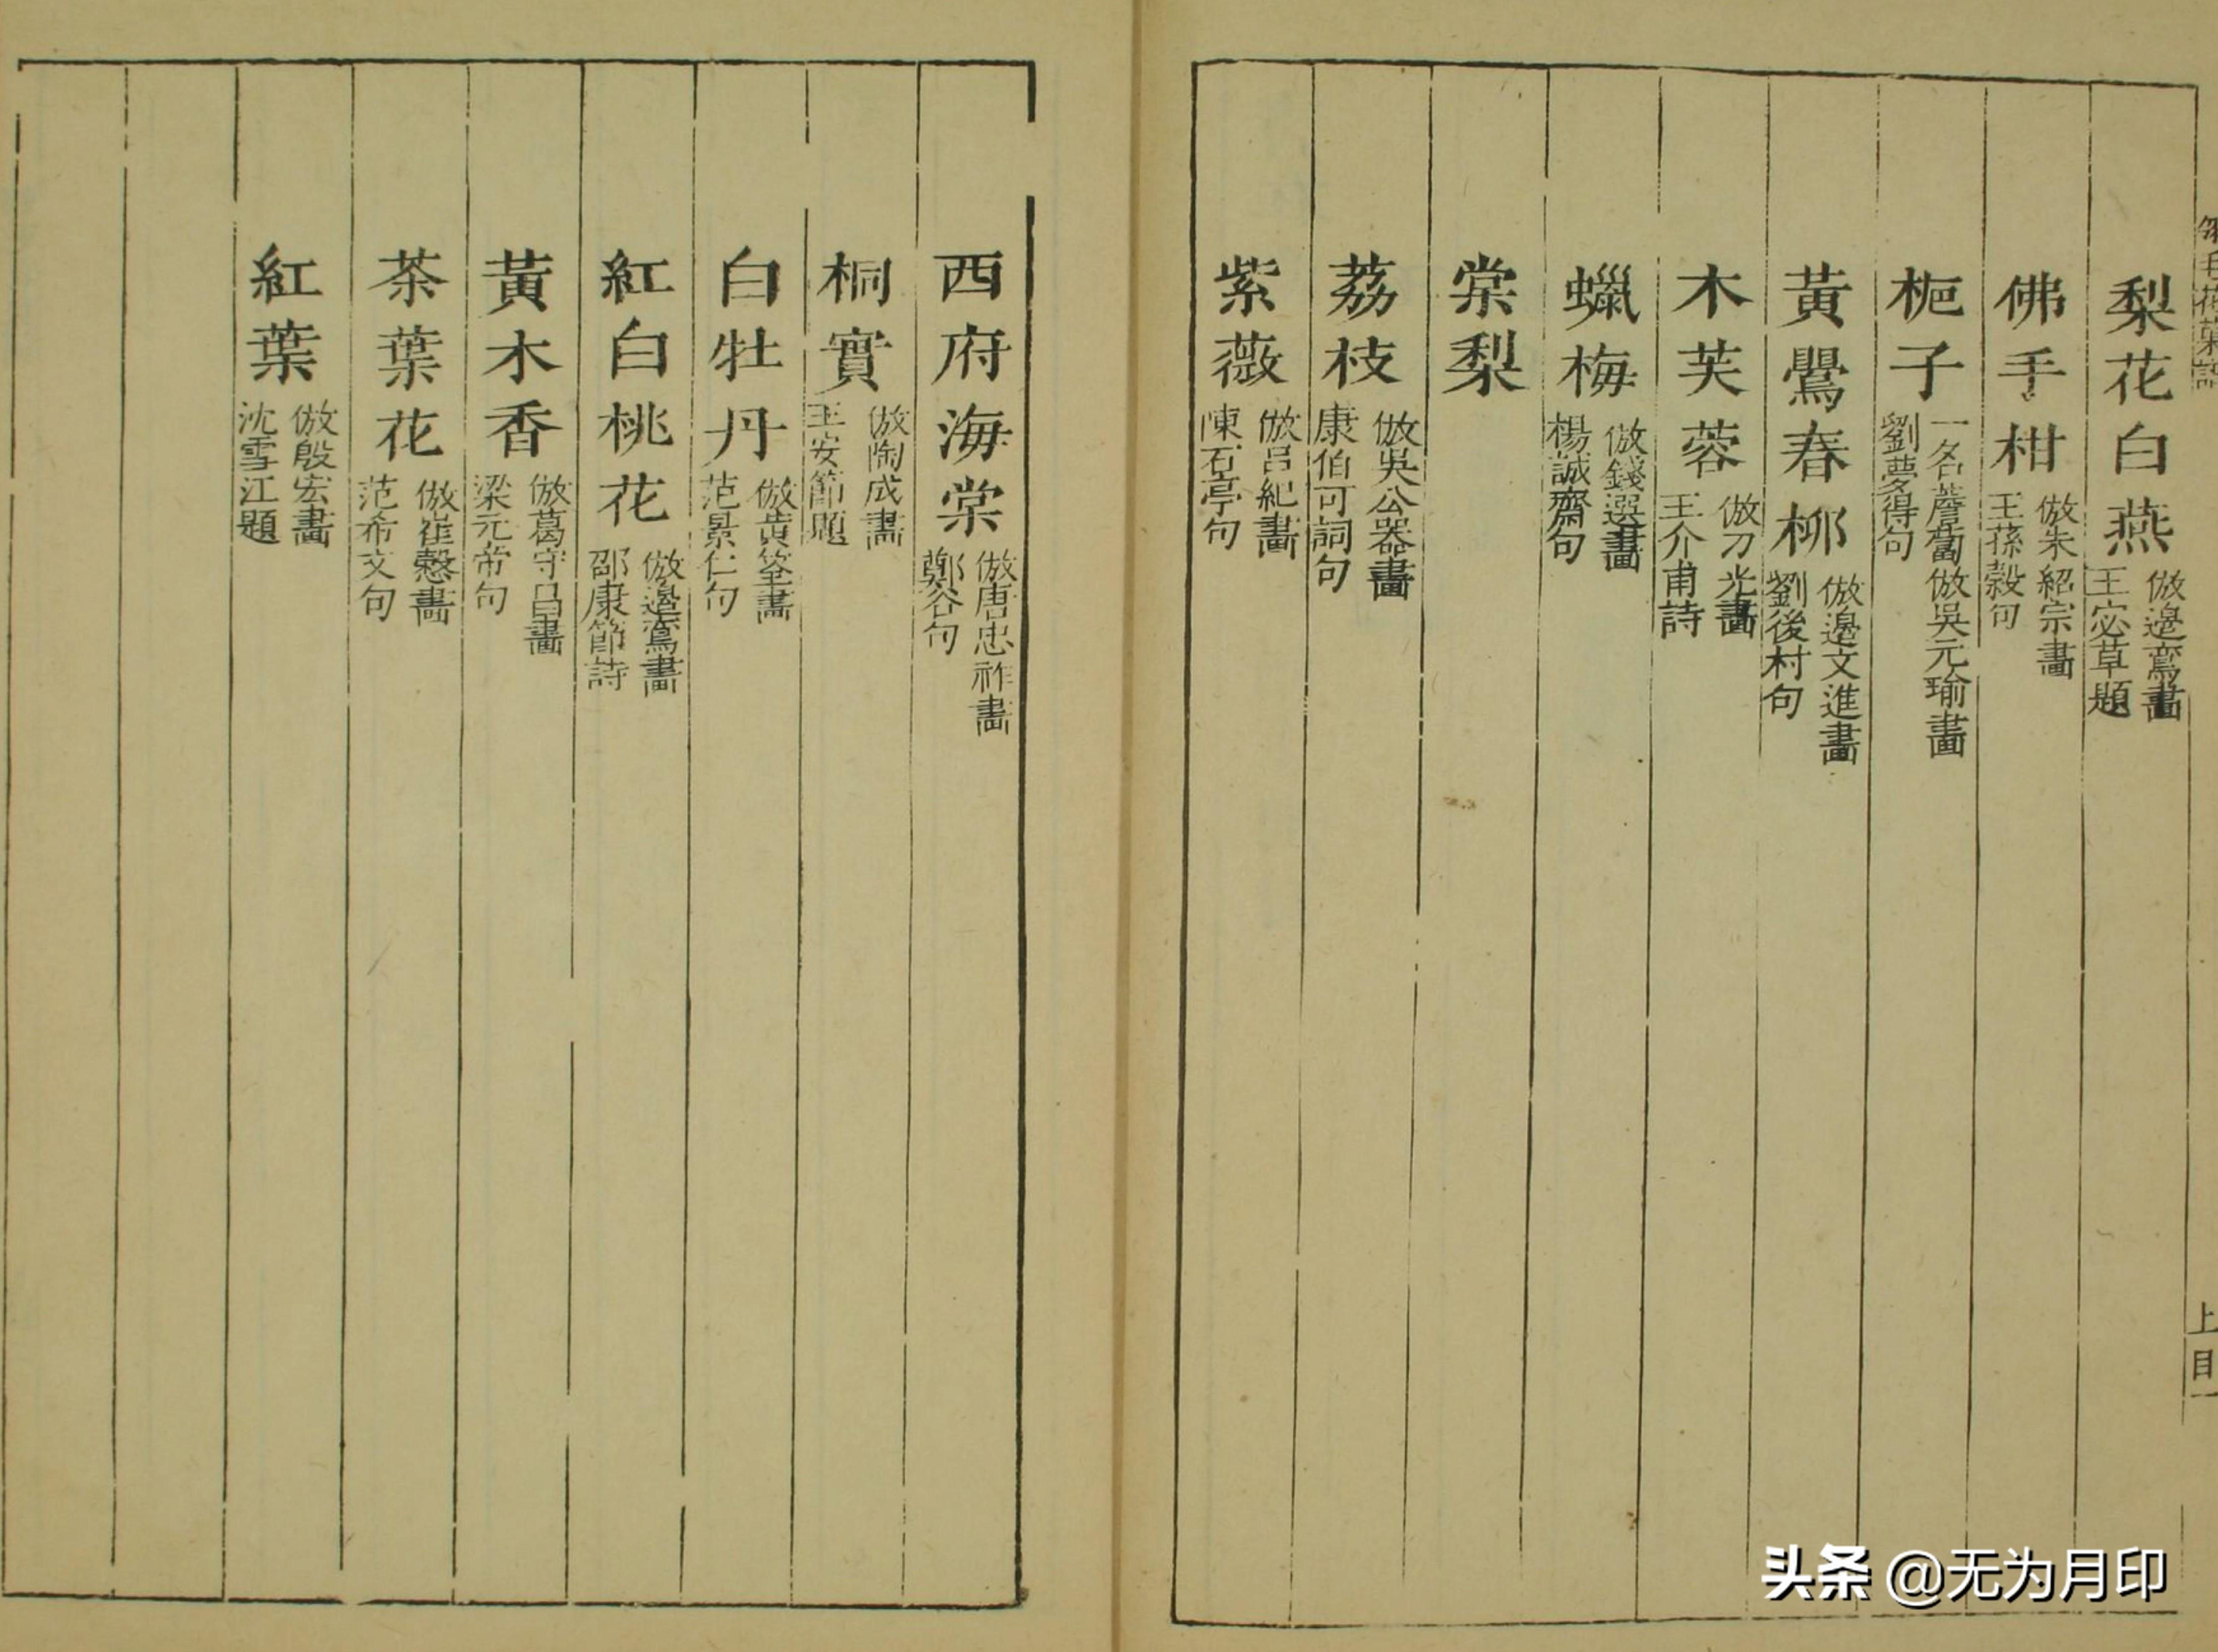 梨花白燕 倣邊鸞畫 王宓草題
佛手柑 倣朱紹宗畫 王蓀穀句
梔子 一名薝蔔 倣吳元瑜畫 劉夢得句
黃鸎春柳 倣邊文進畫 劉後村句
木芙蓉 倣刁光畫 王介甫詩
蠟梅 倣錢選畫 楊誠齋句
棠梨
荔枝 倣吳公器畫 康伯可詞句
紫薇 倣呂紀畫 陳石亭句
上目一
西府海棠 倣唐忠祚畫 鄭谷句
桐實 倣陶成畫 王安節題
白牡丹 倣黃筌畫 范景仁句
紅白桃花 倣邊鸞畫 邵康節詩
黃木香 倣葛守昌畫 梁元帝句
茶葉花 倣崔慤畫 范希文句
紅葉 倣殷宏畫 沈雪江題
头条 @无为月印